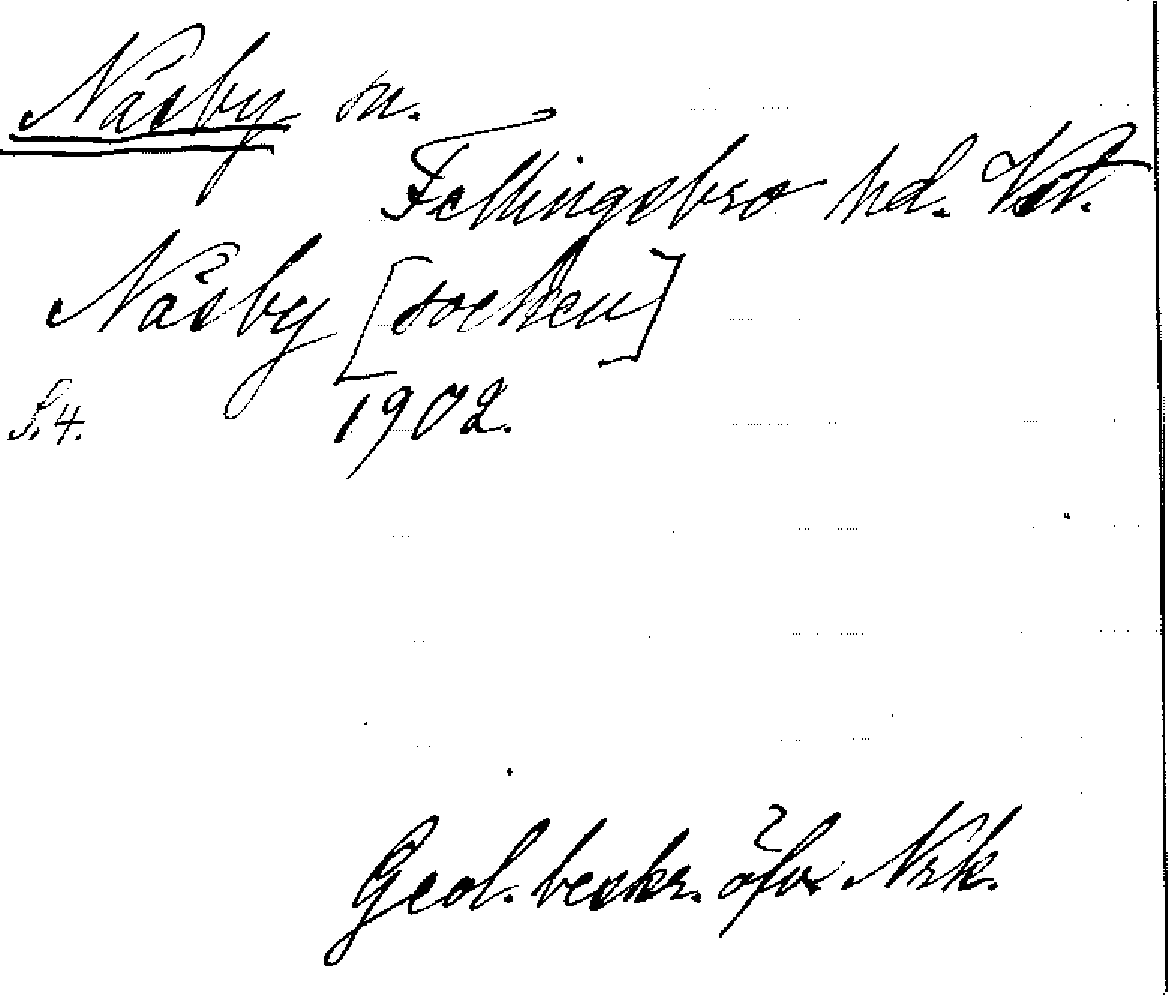 Näsby sn.
Fellingsbro hd. Vstm.
Näsby [socken]
S. 4. 1902.
Geol. beskr. öfv. Nrk.